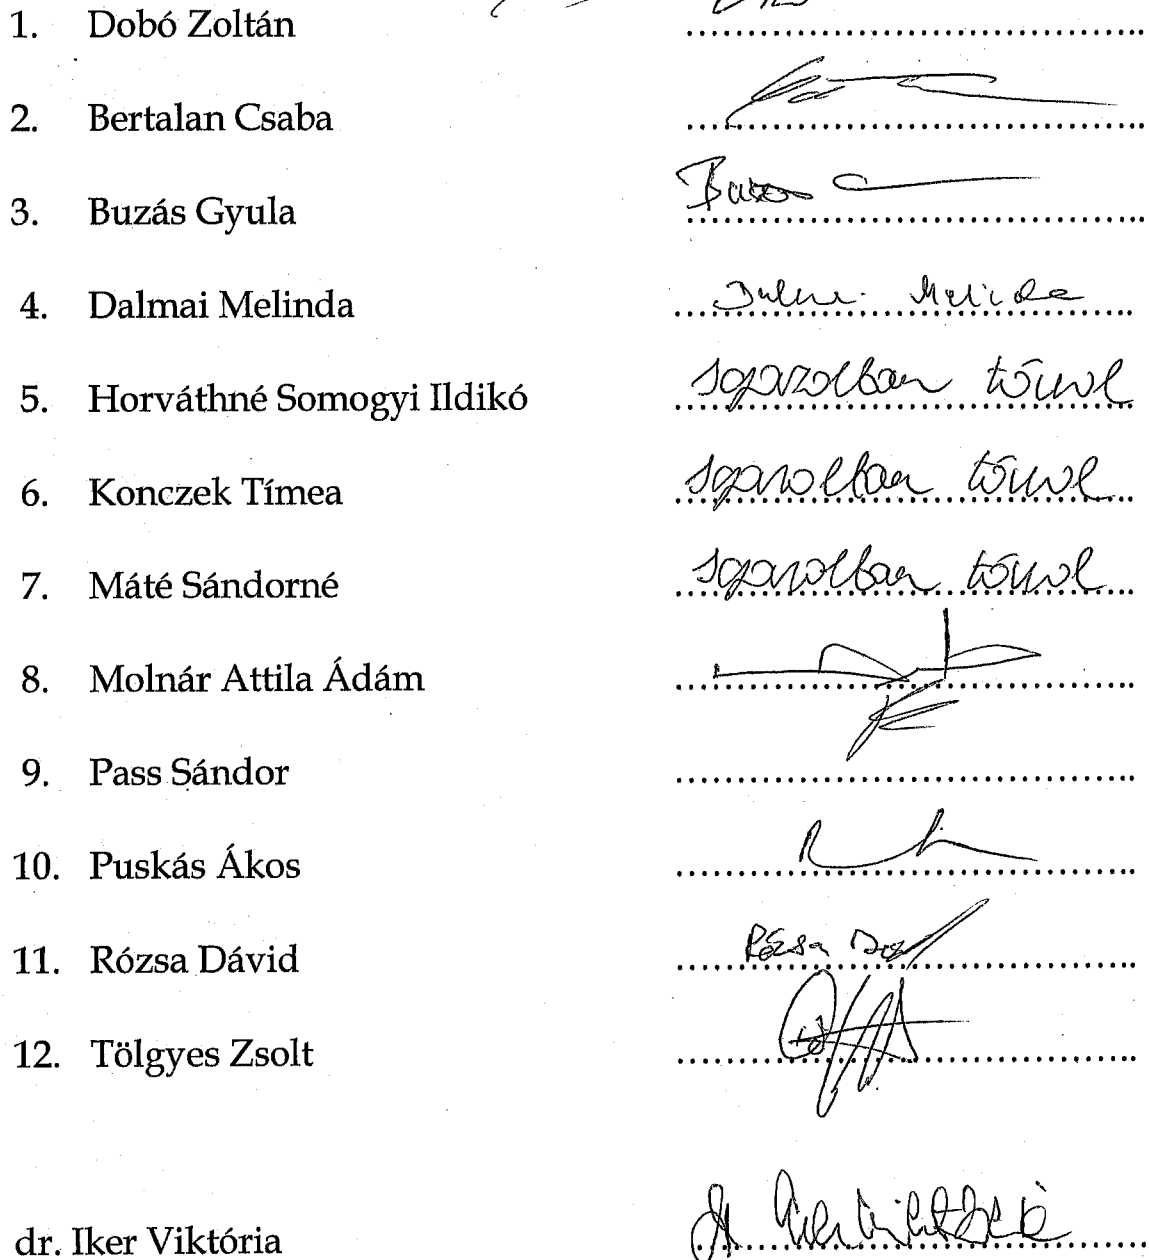 1. Dobó Zoltán ........................................
2. Bertalan Csaba ........................................
3. Buzás Gyula ........................................
4. Dalmai Melinda Dalmai Melinda
5. Horváthné Somogyi Ildikó igazoltan távol
6. Konczek Tímea igazoltan távol
7. Máté Sándorné igazoltan távol
8. Molnár Attila Ádám ........................................
9. Pass Sándor ........................................
10. Puskás Ákos ........................................
11. Rózsa Dávid Rózsa Dávid
12. Tölgyes Zsolt ........................................
dr. Iker Viktória dr. Iker Viktória